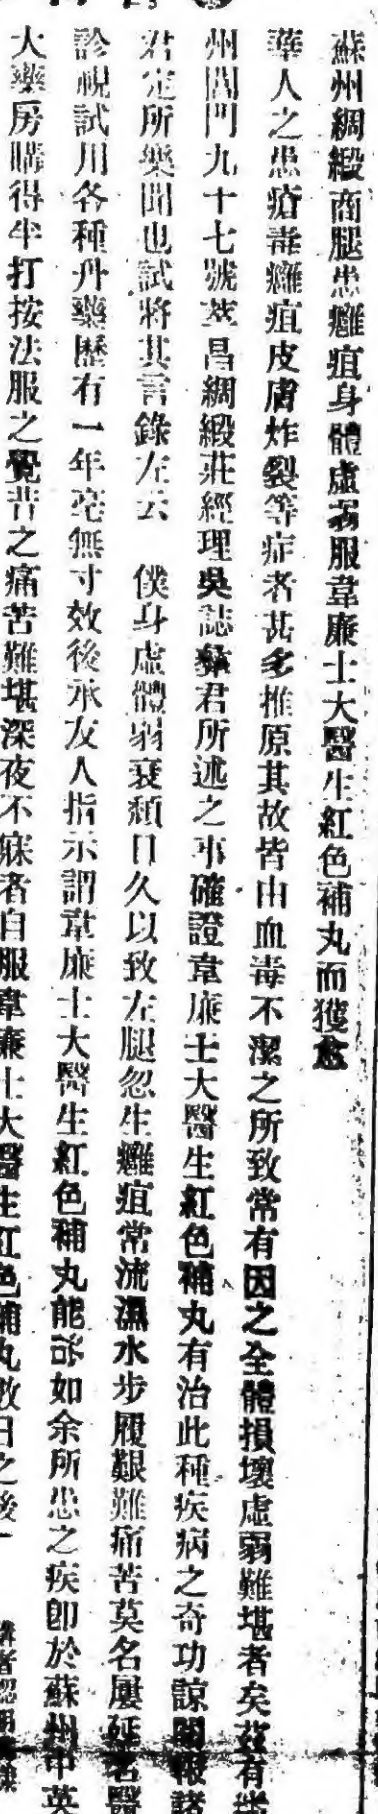 蘇州綢緞商腿患癰疽身體虛弱服韋廉士大醫生紅色補丸而獲愈
華人之患瘡毒癰疽皮膚炸裂等症者甚多推原其故皆由血毒不潔之所致常有因之全體損壞虛弱難堪者矣茲有蘇
州閶門九十七號 昌綢緞莊經理吳誌 君所述之事確證韋廉士大醫生紅色補丸有治此種疾病之奇功諒閱報諸
君定所樂聞也試將其言錄左云 僕身虛體弱衰頹日久以致左腿忽生癰疽常流濕水步履艱難痛苦莫名屢延名醫
診視試用各種丹藥歷有一年毫無寸效後承友人指示謂韋廉士大醫生紅色補丸能 如余所患之疾卽於蘇州中英
大藥房購得半打按法服之覺昔之痛苦難堪深夜不寐者自服韋廉士大醫生紅色補丸數日之後